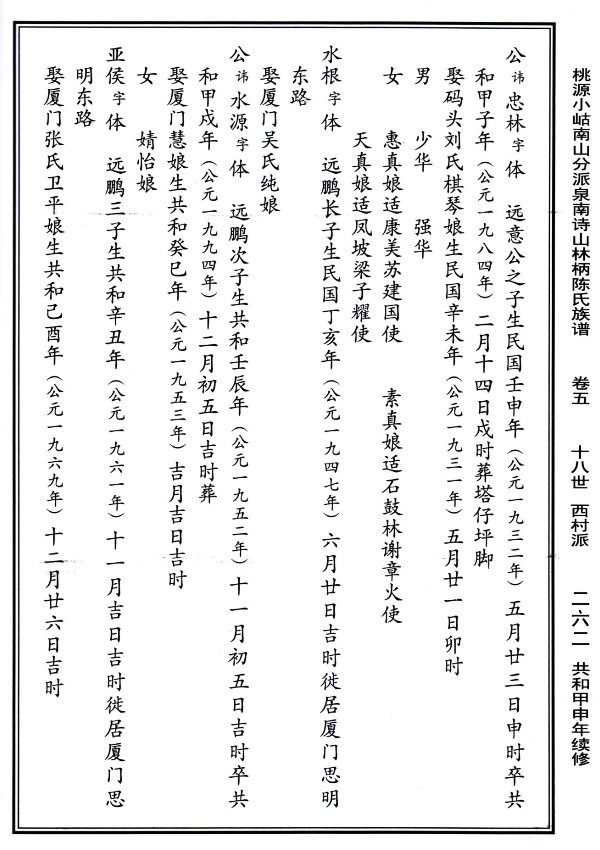 桃源小岵南山分派泉南诗山林柄陈氏族谱 卷五 十八世 西村派 二六二 共和甲申年续修
公讳忠林字体 远意公之子生民国壬申年（公元一九三二年）五月廿三日申时卒共
和甲子年（公元一九八四年）二月十四日戌时葬塔仔坪脚
娶码头刘氏棋琴娘生民国辛未年（公元一九三一年）五月廿一日卯时
男 少华 强华
女 惠真娘适康美苏建国使 素真娘适石鼓林谢章火使
天真娘适凤坡梁子耀使
水根字体 远鹏长子生民国丁亥年（公元一九四七年）六月廿日吉时徙居厦门思明
东路
娶厦门吴氏纯娘
公讳水源字体 远鹏次子生共和壬辰年（公元一九五二年）十一月初五日吉时卒共
和甲戌年（公元一九九四年）十二月初五日吉时葬
娶厦门慧娘生共和癸巳年（公元一九五三年）吉月吉日吉时
女 婧怡娘
亚侯字体 远鹏三子生共和辛丑年（公元一九六一年）十一月吉日吉时徙居厦门思
明东路
娶厦门张氏卫平娘生共和己酉年（公元一九六九年）十二月廿六日吉时